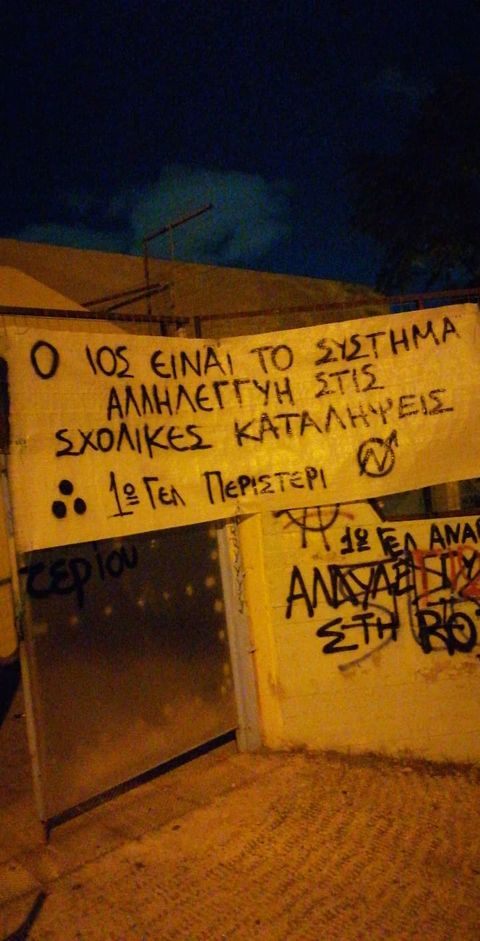 Ο ΙΟΣ ΕΙΝΑΙ ΤΟ ΣΥΣΤΗΜΑ
ΑΛΛΗΛΕΓΓΥΗ ΣΤΙΣ
ΣΧΟΛΙΚΕΣ ΚΑΤΑΛΗΨΕΙΣ
1ο ΓΕΛ ΠΕΡΙΣΤΕΡΙ
τερίου
1ο ΓΕΛ ΑΝΑΡ
ΣΤΗ